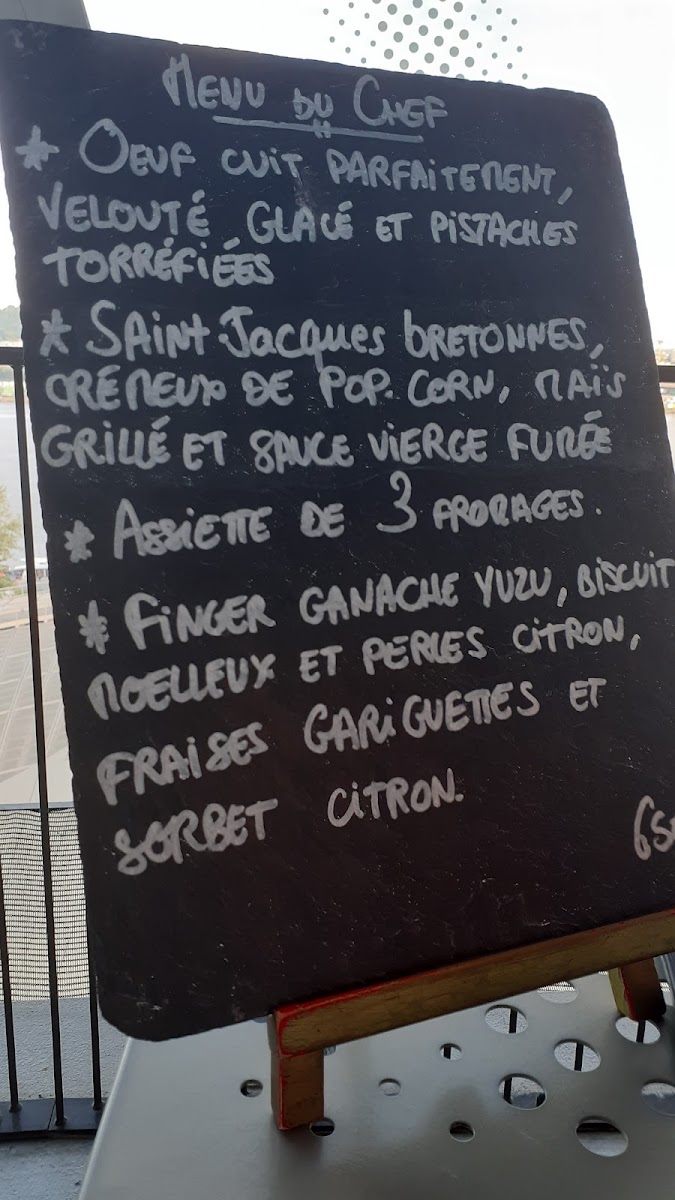 MENU DU CHEF
* OEUF CUIT PARFAITEMENT,
VELOUTÉ GLACÉ ET PISTACHES
TORRÉFIÉES
* SAINT JACQUES BRETONNES,
CRÉMEUX DE POP. CORN, MAÏS
GRILLÉ ET SAUCE VIERGE FUMÉE
* ASSIETTE DE 3 FROMAGES.
* FINGER GANACHE YUZU, BISCUIT
MOELLEUX ET PERLES CITRON,
FRAISES GARIGUETTES ET
SORBET CITRON.